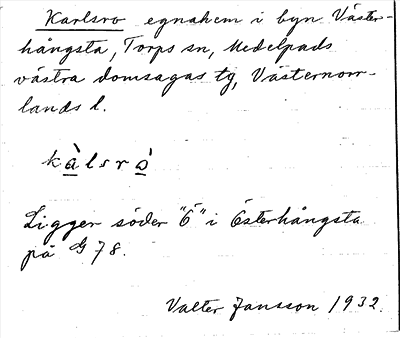 Karlsro egnahem i byn Väster-
hångsta, Torps sn, Medelpads
västra domsagas tg, Västernorr-
lands l.
kàlsrò
Ligger söder "Ö" i Österhångsta
på G 78.
Valter Jansson 1932.